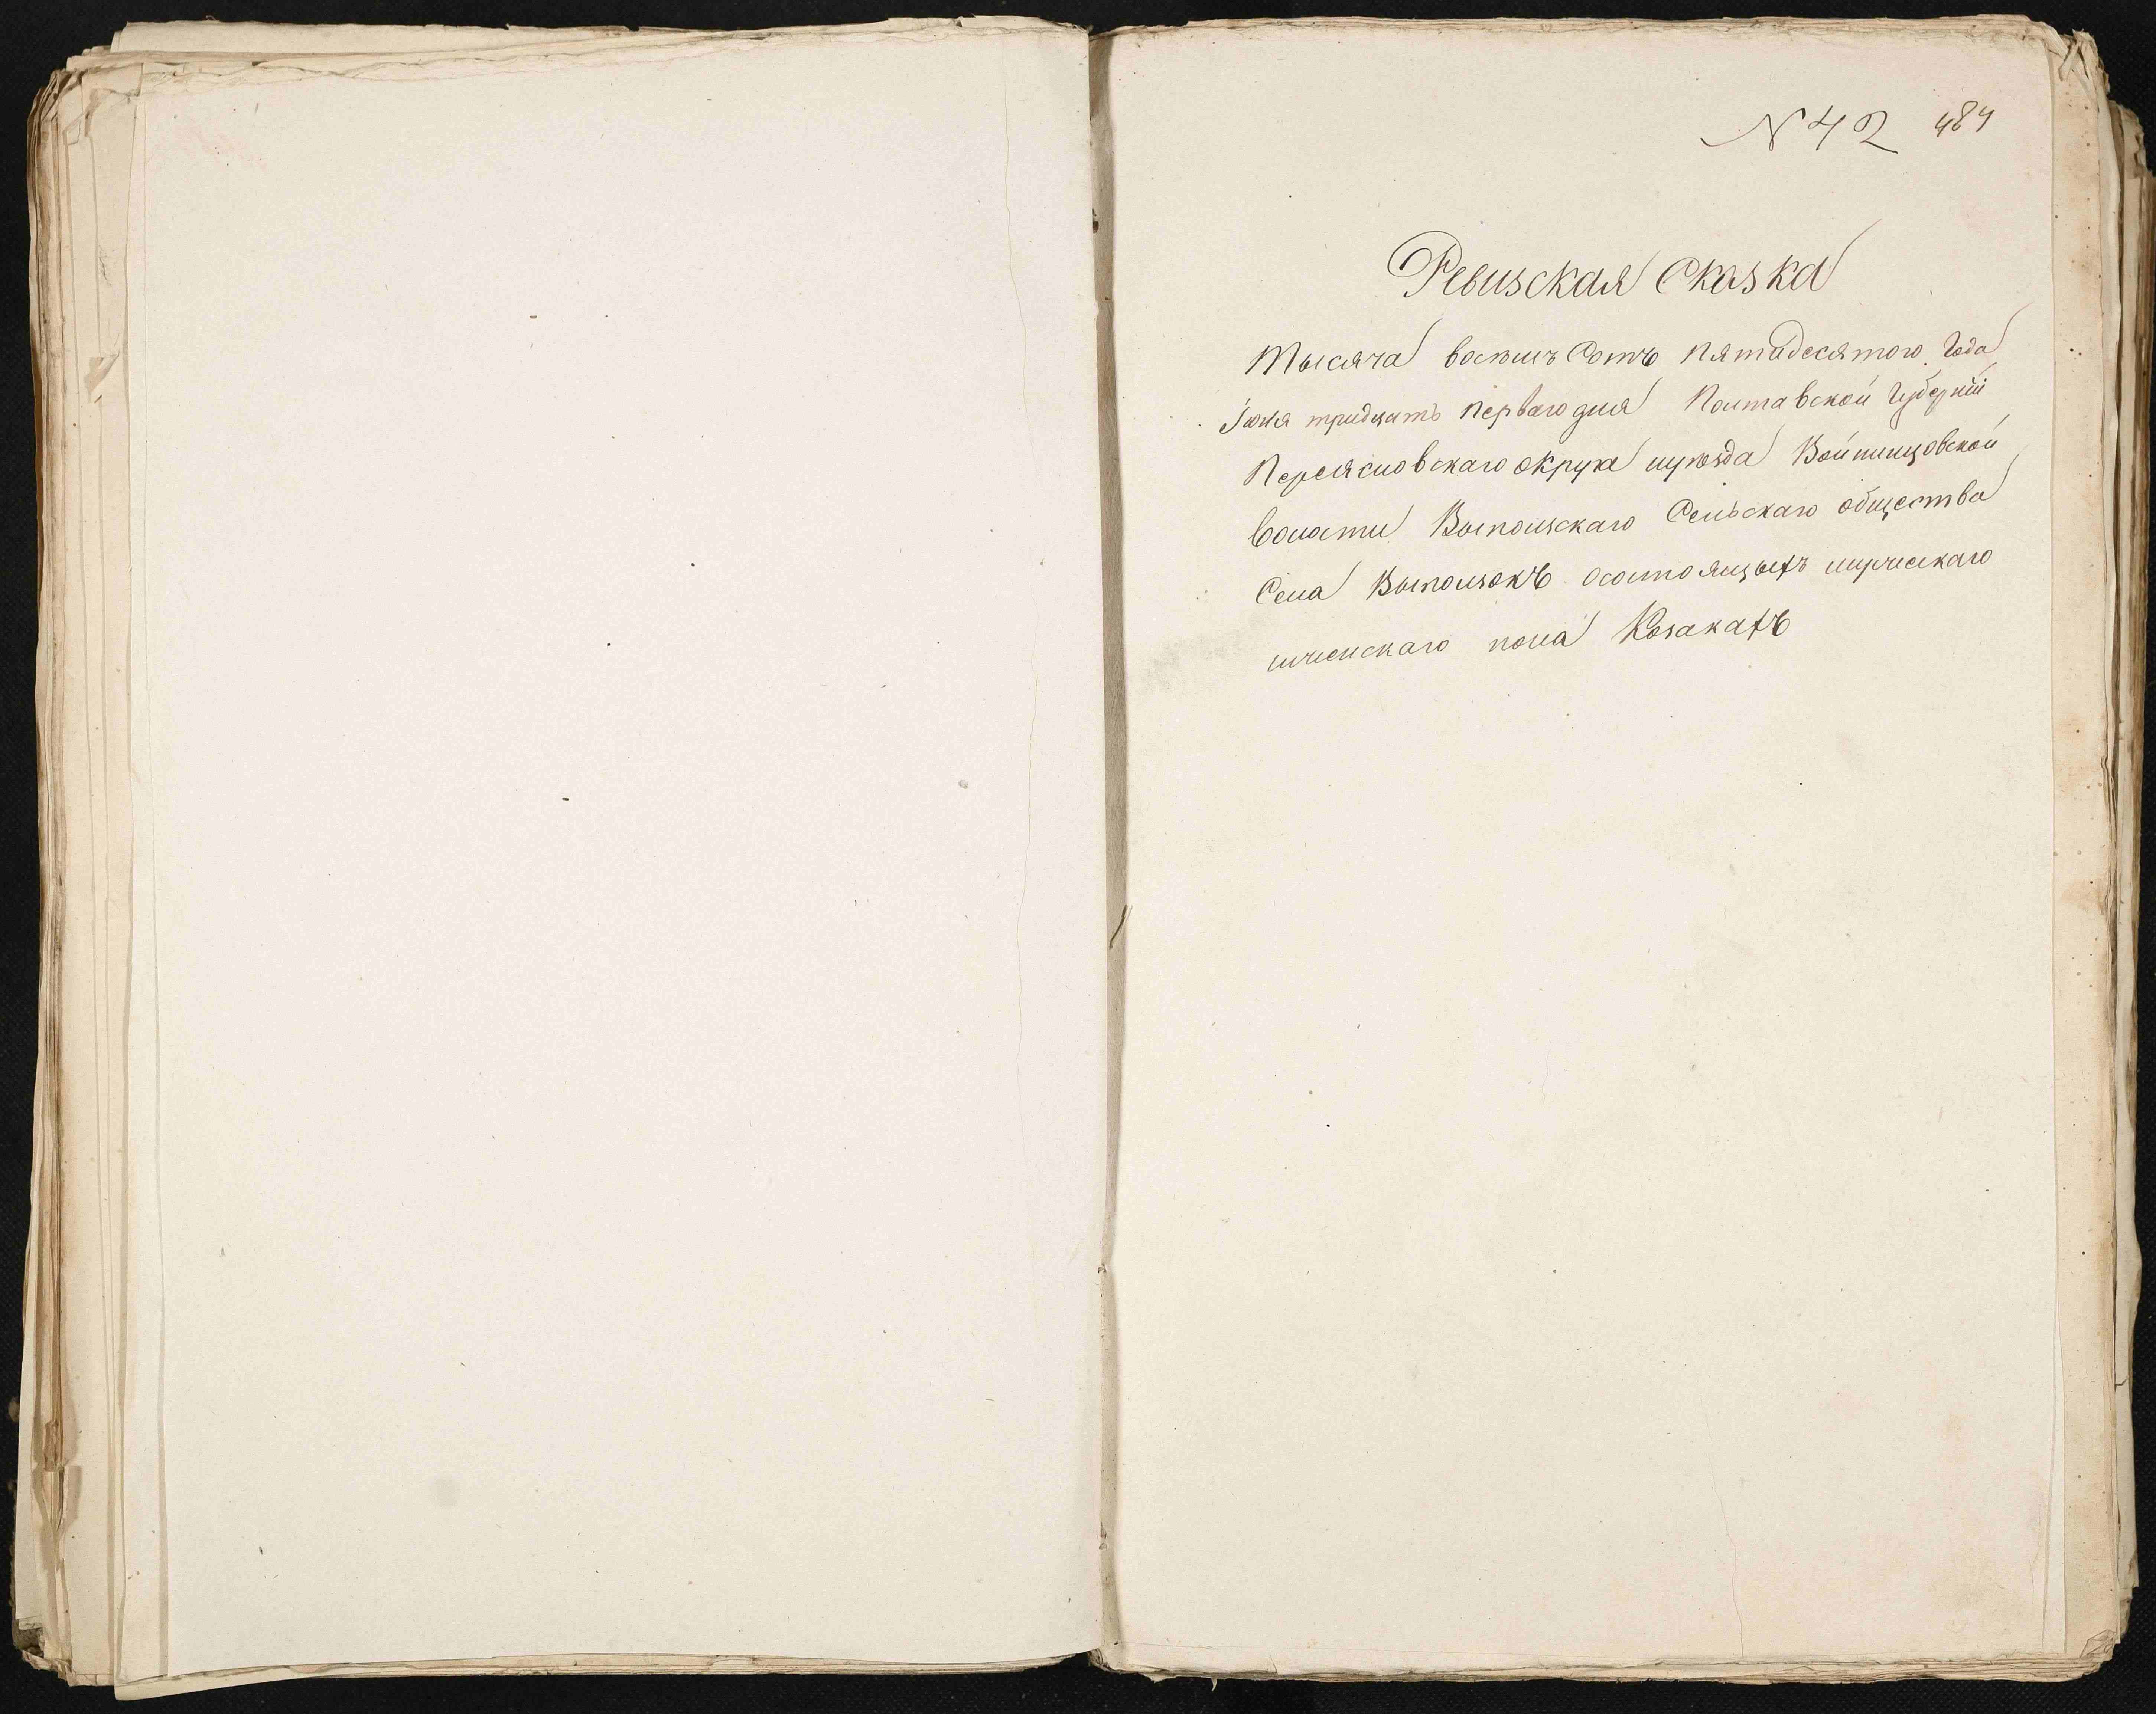 N 42 484
Ревизская Сказка
Тысяча восемь Сотъ пятидесятого Года
Іюля тридцать перваго дня Полтавской Губерніи
Переясловскаго округа иуѣзда Войтинцовской
волости Выползскаго Сельскаго общества
Села Выползокъ осостоящыхъ мужескаго
иженскаго пола Козакахъ